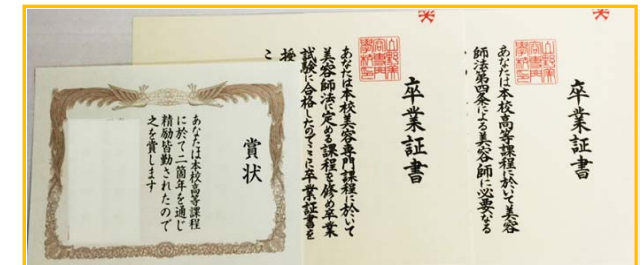 卒業証書
あなたは本校高等課程に於いて美容
師法第四条による美容師に必要なる
卒業証書
あなたは本校美容専門課程に於いて
美容師法に定める課程を修め卒業
試験に合格したのでここに卒業証書を
授
こ
賞状
あなたは本校高等課程
に於て二箇年を通じ
精励皆勤されたので
之を賞します